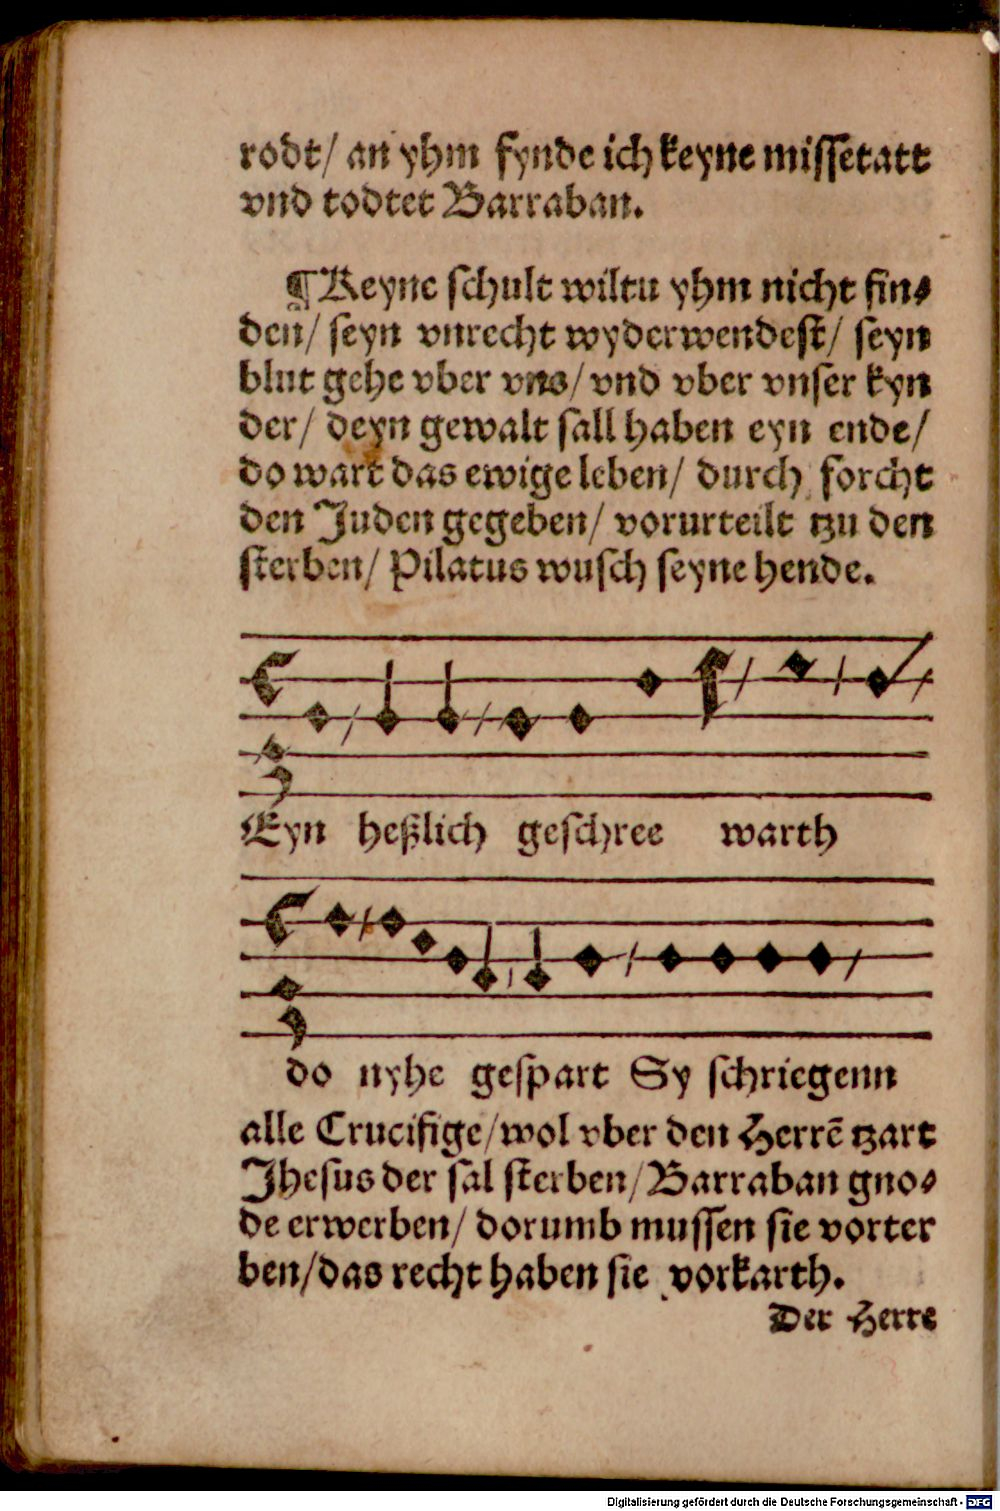 rodt/ an yhm fynde ich keyne missetatt
vnd todtet Barraban.
¶ Keyne schult wiltu yhm nicht fin⸗
den/ seyn vnrecht wyderwendest/ seyn
blut gehe vber vns/ vnd vber vnser kyn
der/ deyn gewalt sall haben eyn ende/
do wart das ewige leben/ durch forcht
den Juden gegeben/ vorurteilt tzu den
sterben/ Pilatus wusch seyne hende.
Eyn heßlich geschree warth
do nyhe gespart Sy schriegenn
alle Crucifige/wol vber den Herrē tzart
Jhesus der sal sterben/ Barraban gno⸗
de erwerben/ dorumb mussen sie vorter
ben/das recht haben sie vorkarth.
Der Herre
Digitalisierung gefördert durch die Deutsche Forschungsgemeinschaft - DFG